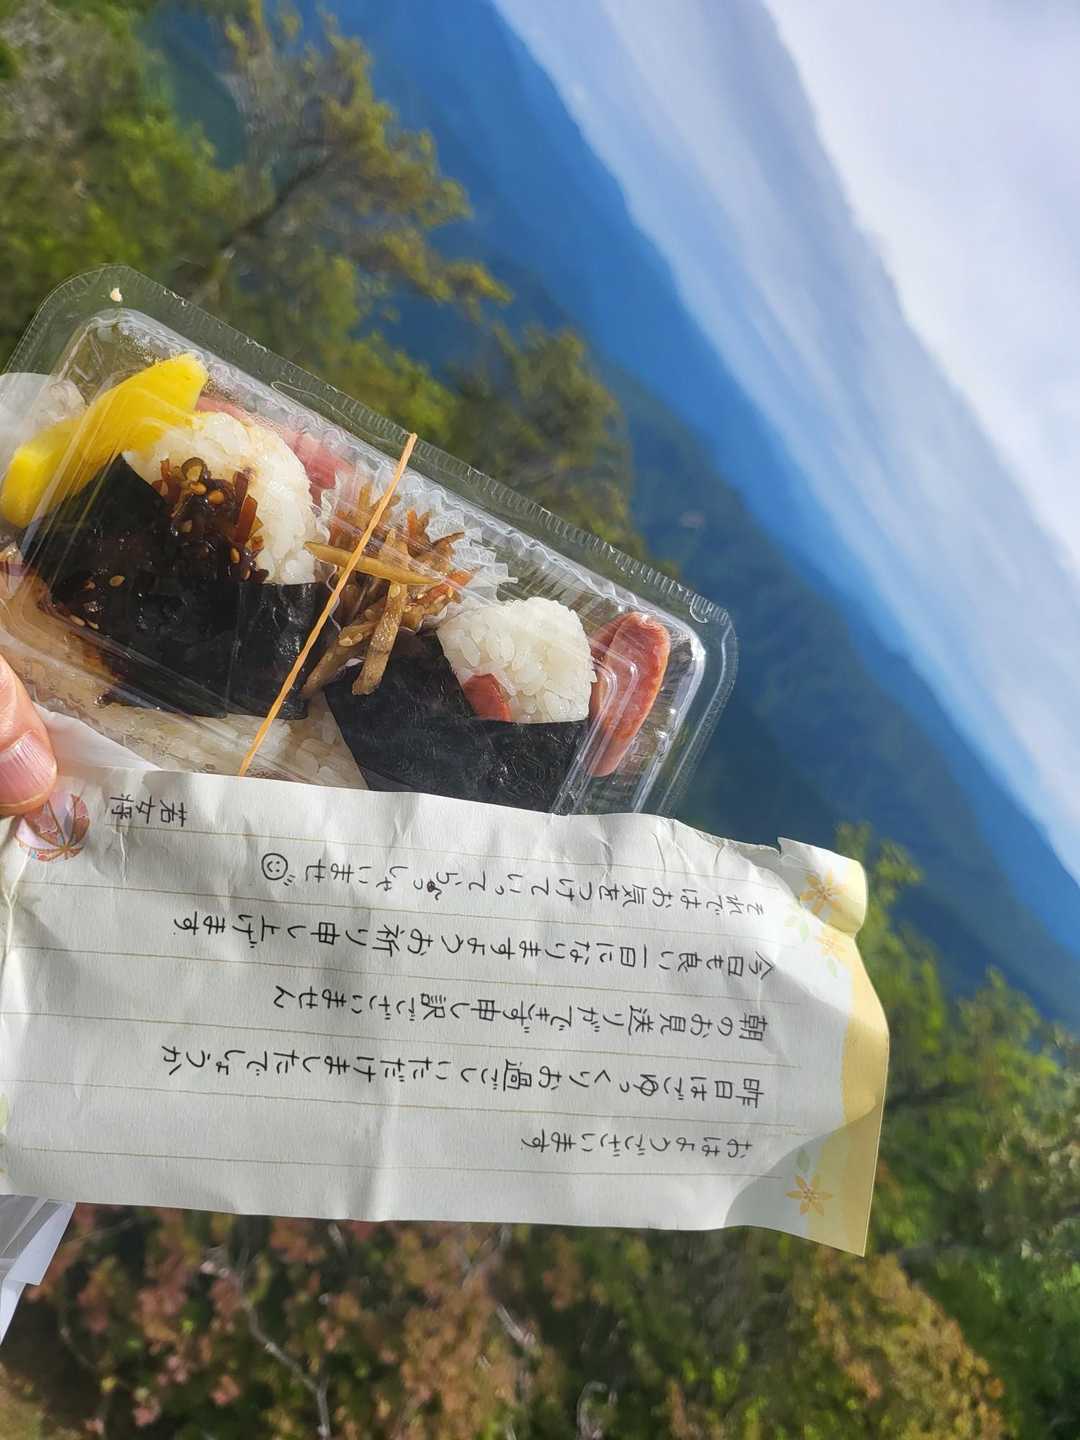 おはようございます
昨日はごゆっくりお過ごしいただけましたでしょうか
朝のお見送りができず申し訳ございません
今日も良い一日になりますようお祈り申し上げます
それではお気をつけていってらっしゃいませ
若女将